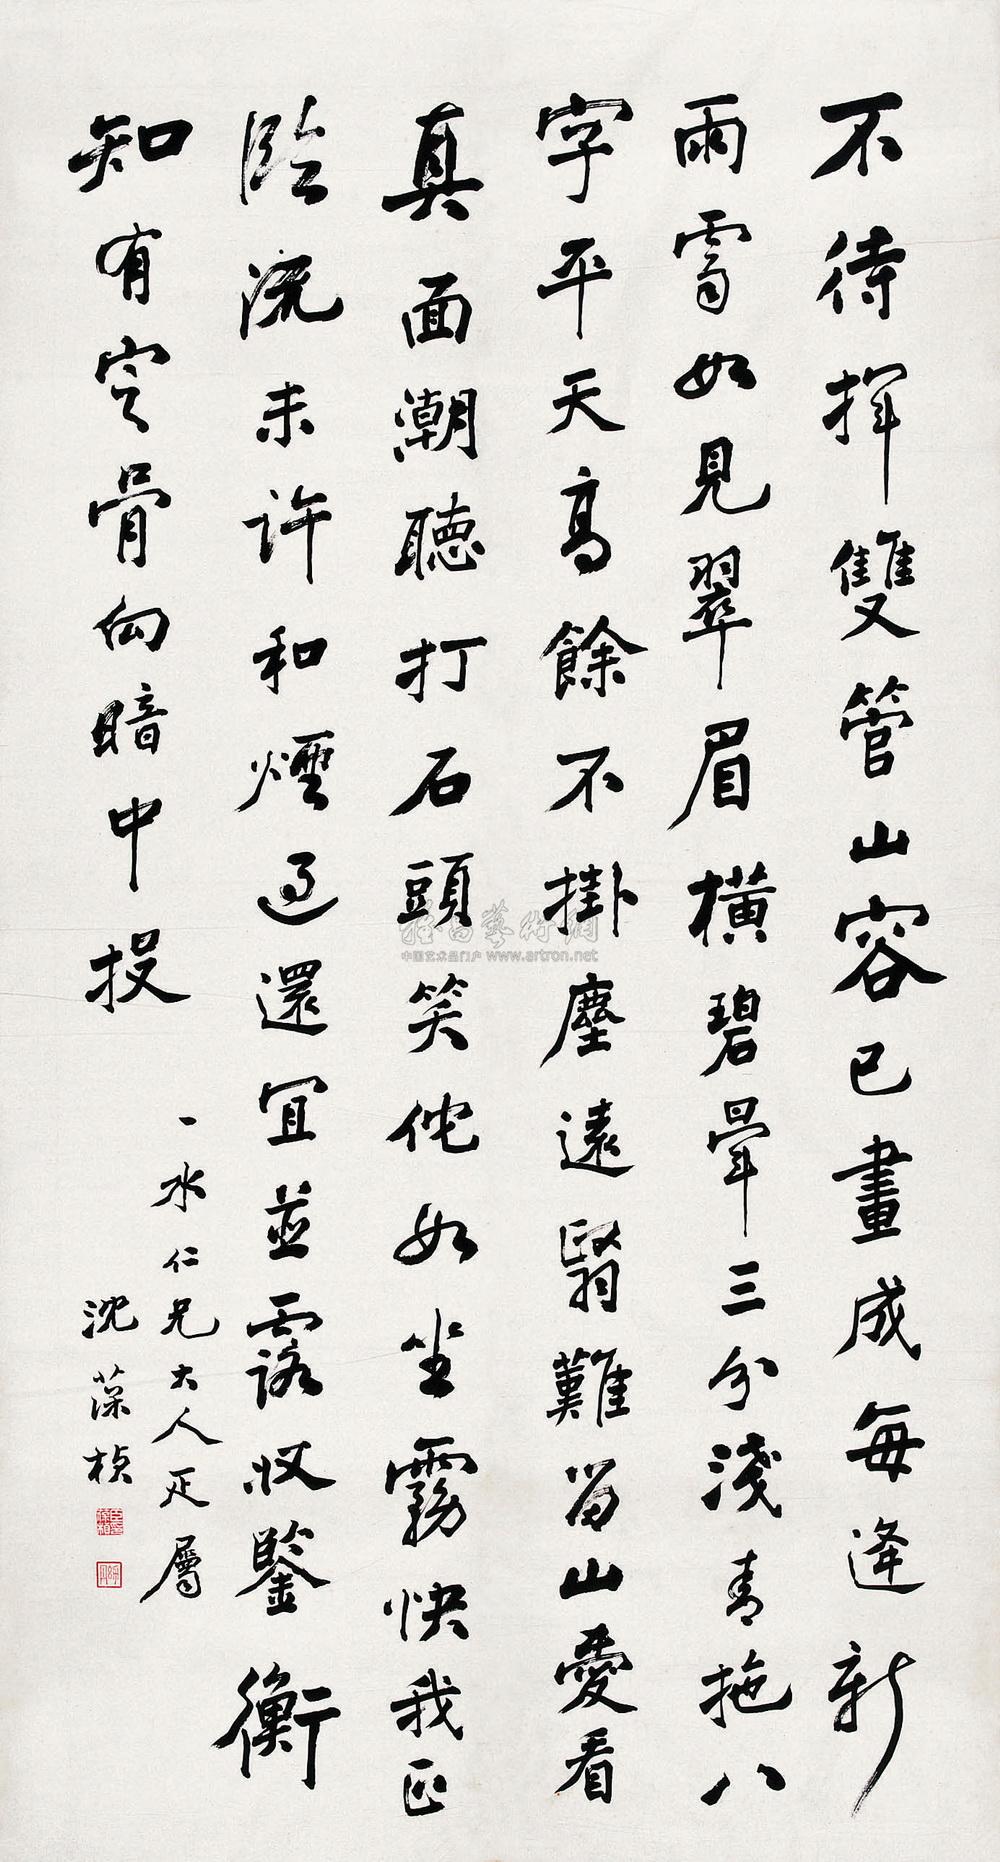 不待揮雙管山容已畫成每逢新
雨霽如見翠眉橫碧暈三分淺青拖八
字平天高餘不掛塵遠翳難留山愛看
真面潮聽打石頭笑佗如坐霧快我正
臨流未許和煙過還宜並露收鑒衡
知有定骨向暗中投
一水仁兄大人正屬
沈葆楨
雅昌藝術網
中国艺术品门户 www.artron.net